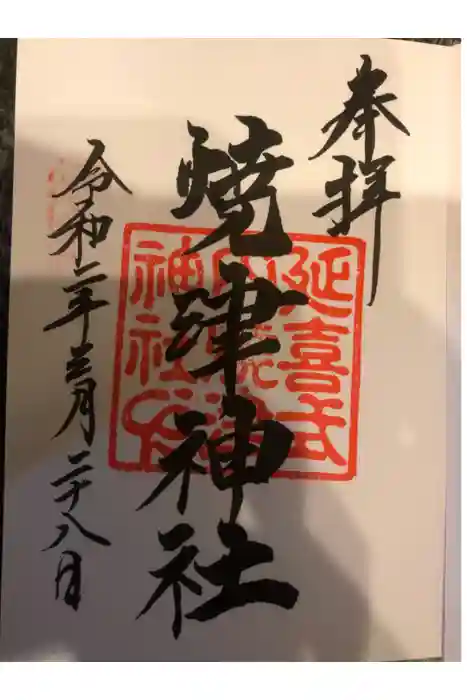 奉拝
焼津神社
令和二年三月二十八日
延喜式
神社